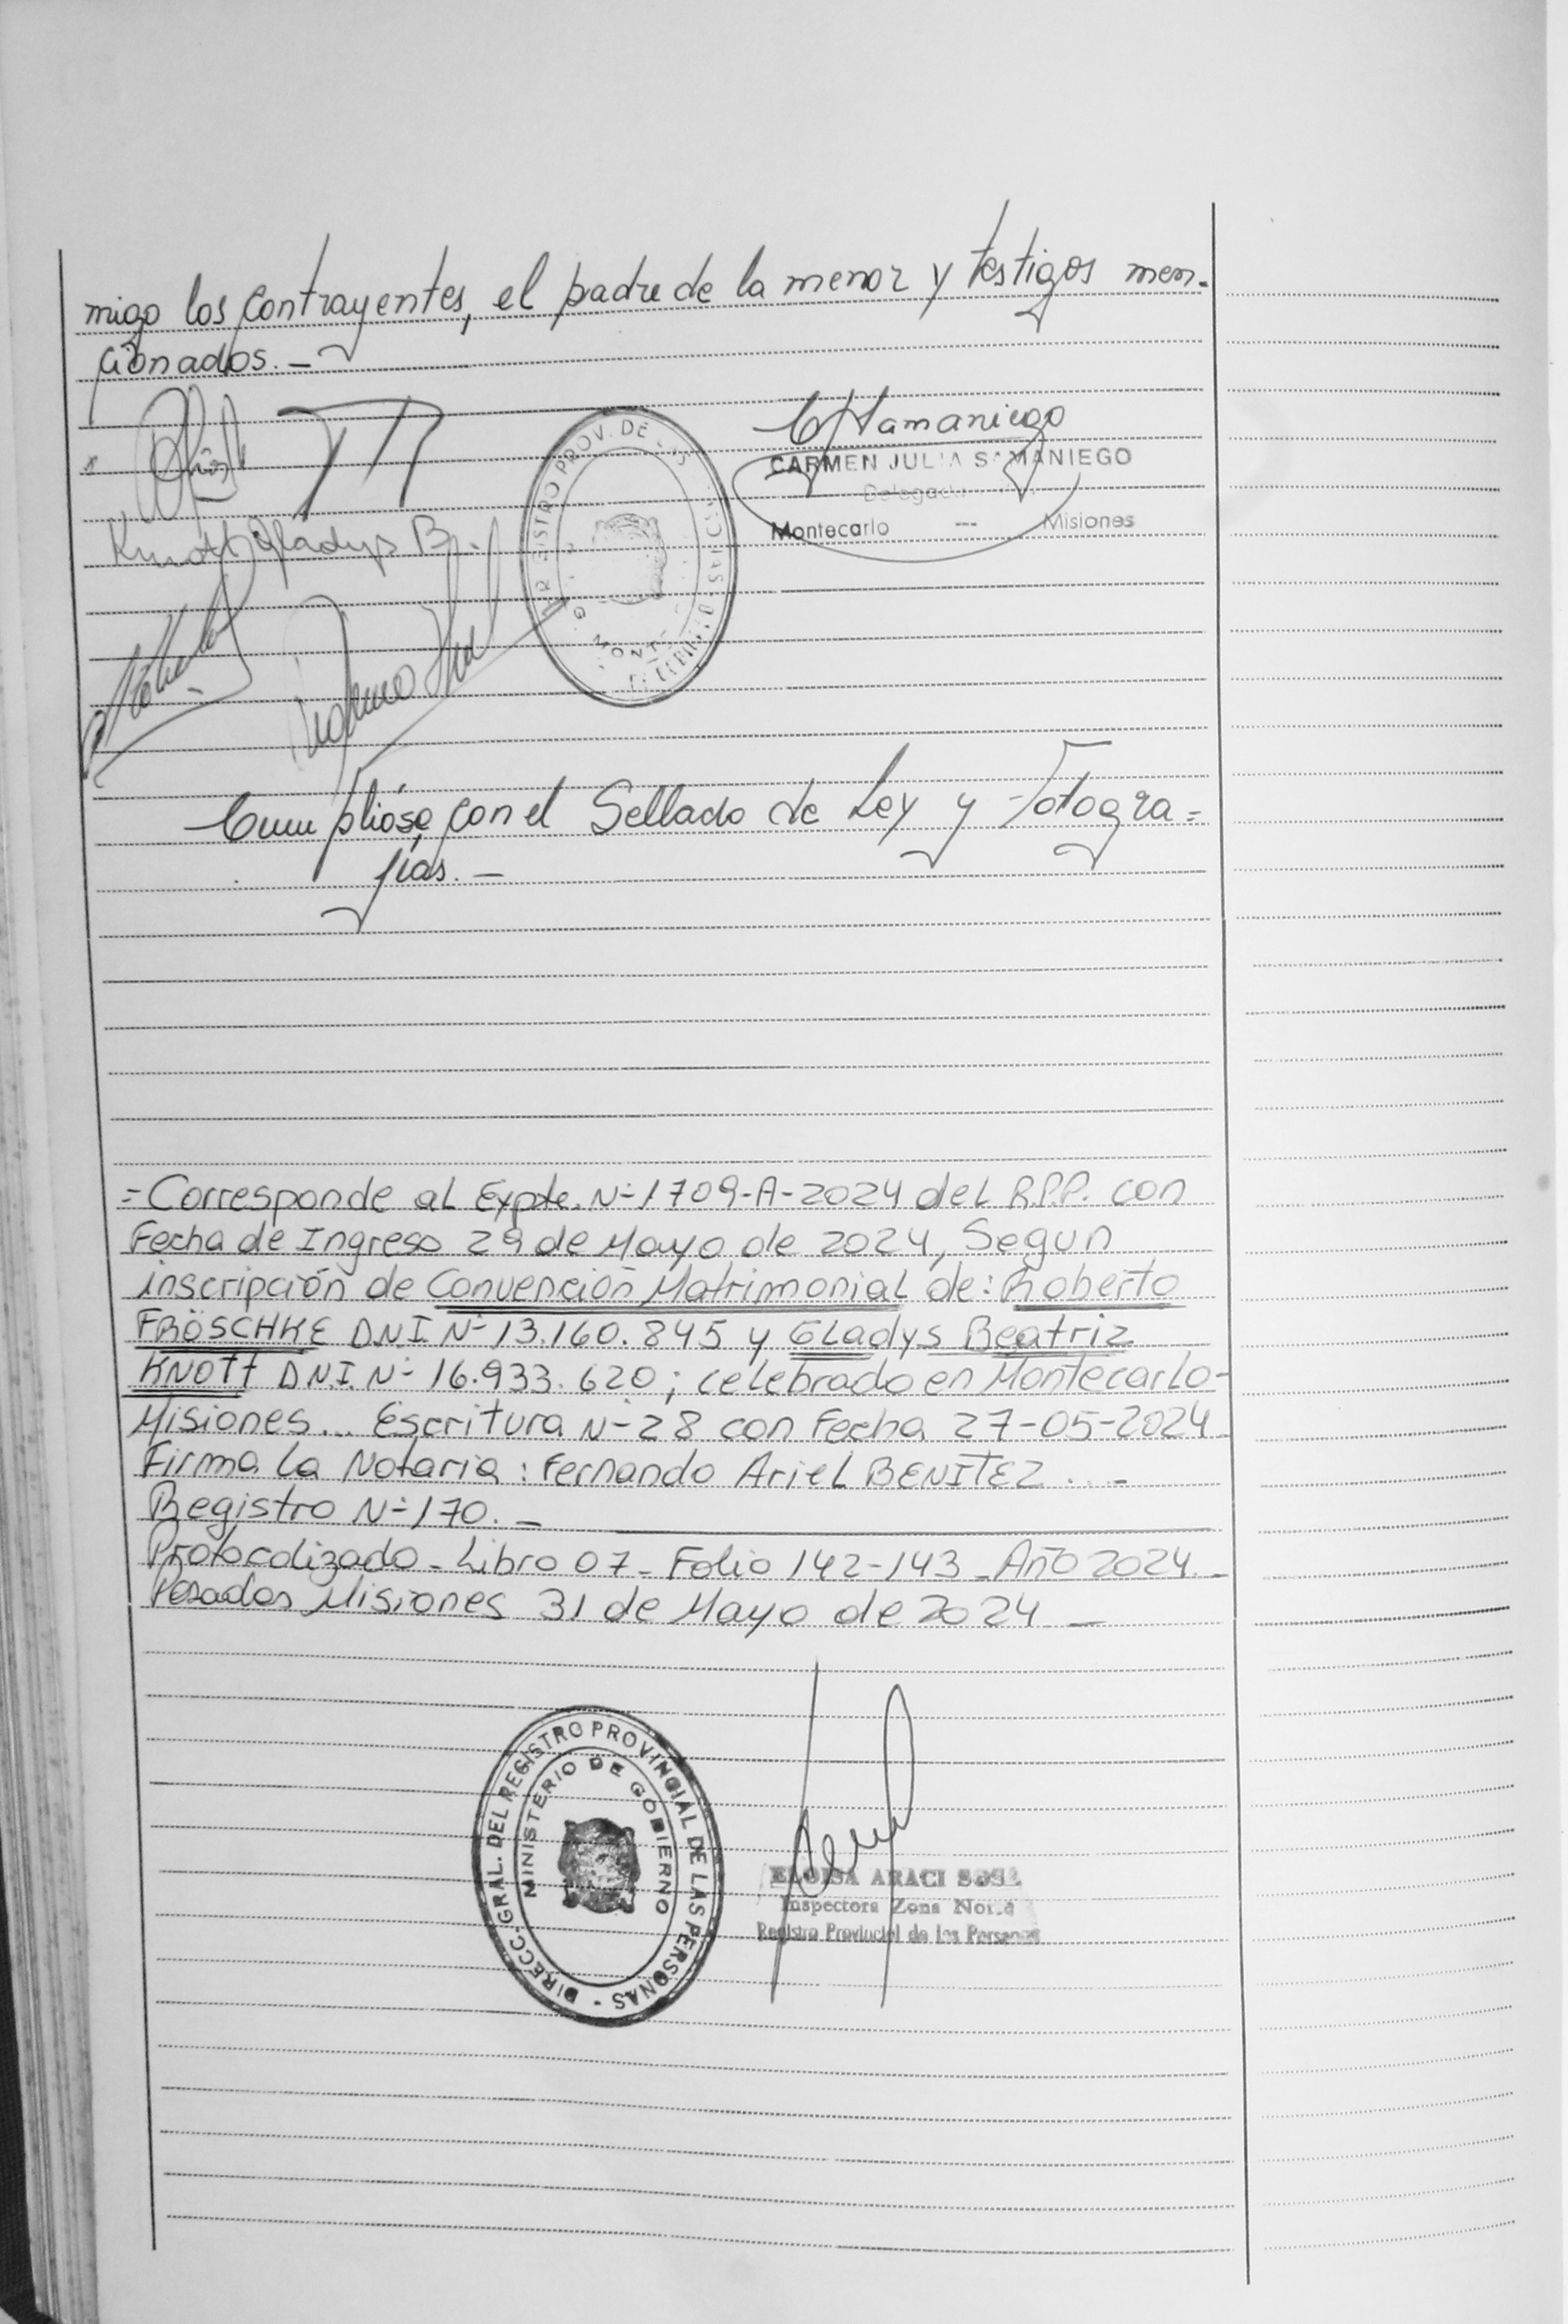 migo los contrayentes, el padre de la menor y testigos men-
cionados.-
Knott Gladys B.
CARMEN JULIA SAMANIEGO
Delegada
Montecarlo --- Misiones
Cumplióse con el Sellado de Ley y Fotogra=
fías.-
=Corresponde al Expte. N-1709-A-2024 del R.P.P. con
Fecha de Ingreso 29 de Mayo de 2024, Segun
inscripción de Convención Matrimonial de: Roberto
FRÖSCHKE D.N.I. N- 13.160.845 y Gladys Beatriz
KNOTT D.N.I. N- 16.933.620; celebrado en Montecarlo-
Misiones... Escritura N-28 con Fecha 27-05-2024
Firma la Notaria: Fernando Ariel BENITEZ...-
Registro N-170.-
Protocolizado-Libro 07-Folio 142-143-Año 2024.-
Posadas Misiones 31 de Mayo de 2024-
DIRECC. GRAL. DEL REGISTRO PROVINCIAL DE LAS PERSONAS -
MINISTERIO DE GOBIERNO
ELOISA ARACI SOSA
Inspectora Zona
Registro Provincial de las Personas